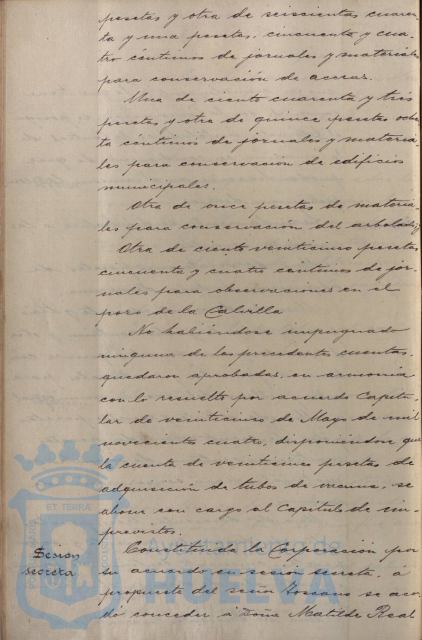 pesetas y otra de seiscientas cuaren-
ta y una pesetas, cincuenta y cua-
tro céntimos de jornales y materiales
para conservación de aceras.
Una de ciento cuarenta y tres
pesetas y otra de quince pesetas ochen
ta céntimos de jornales y materia-
les para conservación de edificios
municipales.
Otra de once pesetas de materia-
les para conservación del arbolado, y
Otra de ciento veinticinco pesetas
cincuenta y cuatro céntimos de jor-
nales para observaciones en el
pozo de la Calvilla
No habiéndose impugnado
ninguna de las precedentes cuentas,
quedaron aprobadas, en armonía
con lo resuelto por acuerdo Capitu-
lar de veinticinco de Mayo de mil
novecientos cuatro, disponiéndose que
la cuenta de veinticinco pesetas de
adquisición de tubos de vacuna, se
abone con cargo al Capítulo de im-
previstos.
Sesión
secreta
Constituida la Corporación por
su acuerdo en sesión secreta, á
propuesta del señor Toscano se acor-
dó conceder á Doña Matilde Real
ET TERRA
Ayuntamiento de
HUELVA